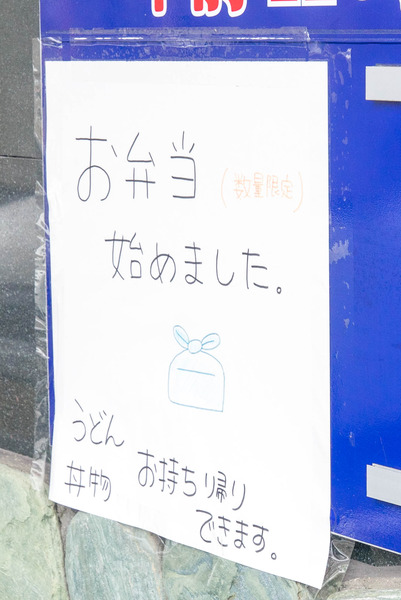 お弁当 (数量限定)
始めました。
うどん
丼物
お持ち帰り
できます。